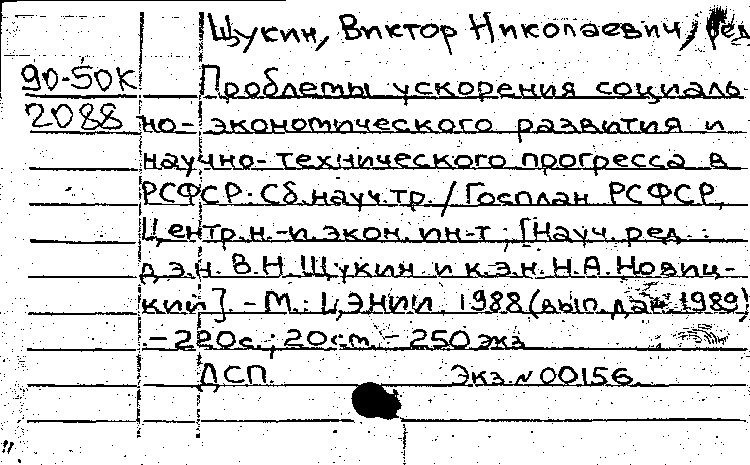 Щукин, Виктор Николаевич, ред
90-50К Проблемы ускорения социаль-
2088 но-экономического развития и
научно-технического прогресса в
РСФСР: Сб.науч.тр. / Госплан РСФСР,
Центр.н.-и.экон.ин-т; [Науч.ред.:
д.э.н. В.Н.Щукин и к.э.н. Н.А.Новиц-
кий]. - М.: ЦЭНИИ, 1988 (вып.дан.1989)
- 220с.; 20см. - 250 экз
ДСП. Экз.№00156.